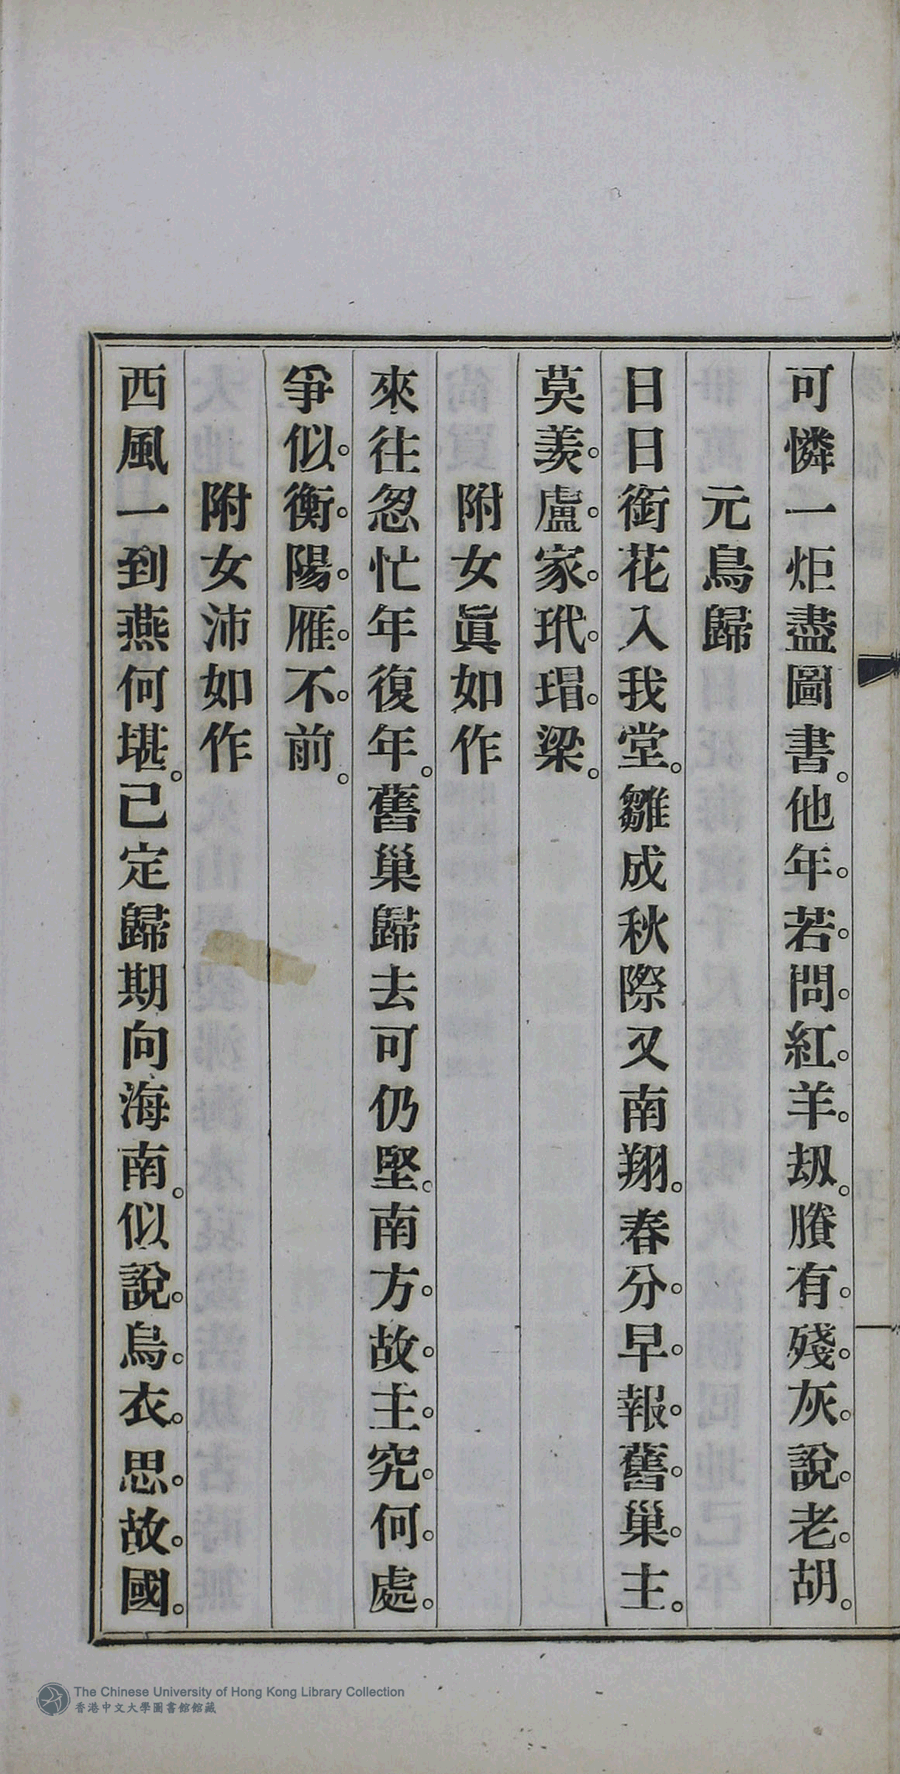 可憐一炬盡圖書。他年若問紅羊刼。賸有殘灰說老胡。
元鳥歸
日日銜花入我堂。雛成秋際又南翔。春分早報舊巢主。
莫羨盧家玳瑁梁。
附女眞如作
來往忽忙年復年。舊巢歸去可仍堅。南方故主究何處。
爭似衡陽雁不前。
附女沛如作
西風一到燕何堪。已定歸期向海南。似說烏衣思故國。
The Chinese University of Hong Kong Library Collection
香港中文大學圖書館館藏